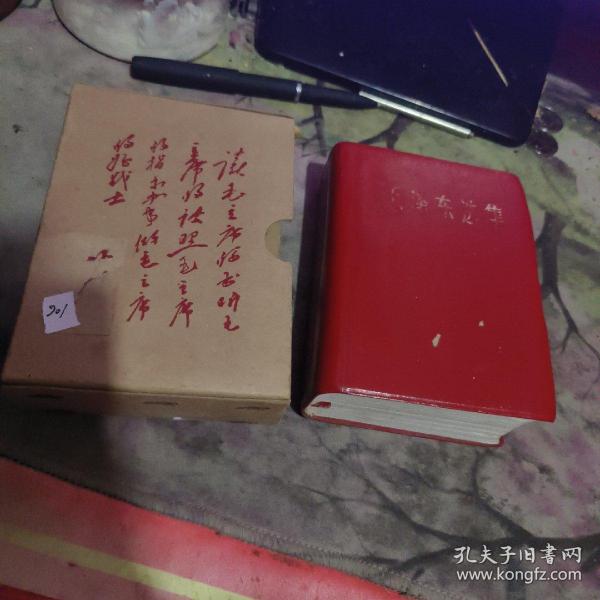 读毛主席的书听毛
主席的话照毛主席
的指示办事做毛主席
的好战士
901
毛泽东选集
孔夫子旧书网
www.kongfz.com